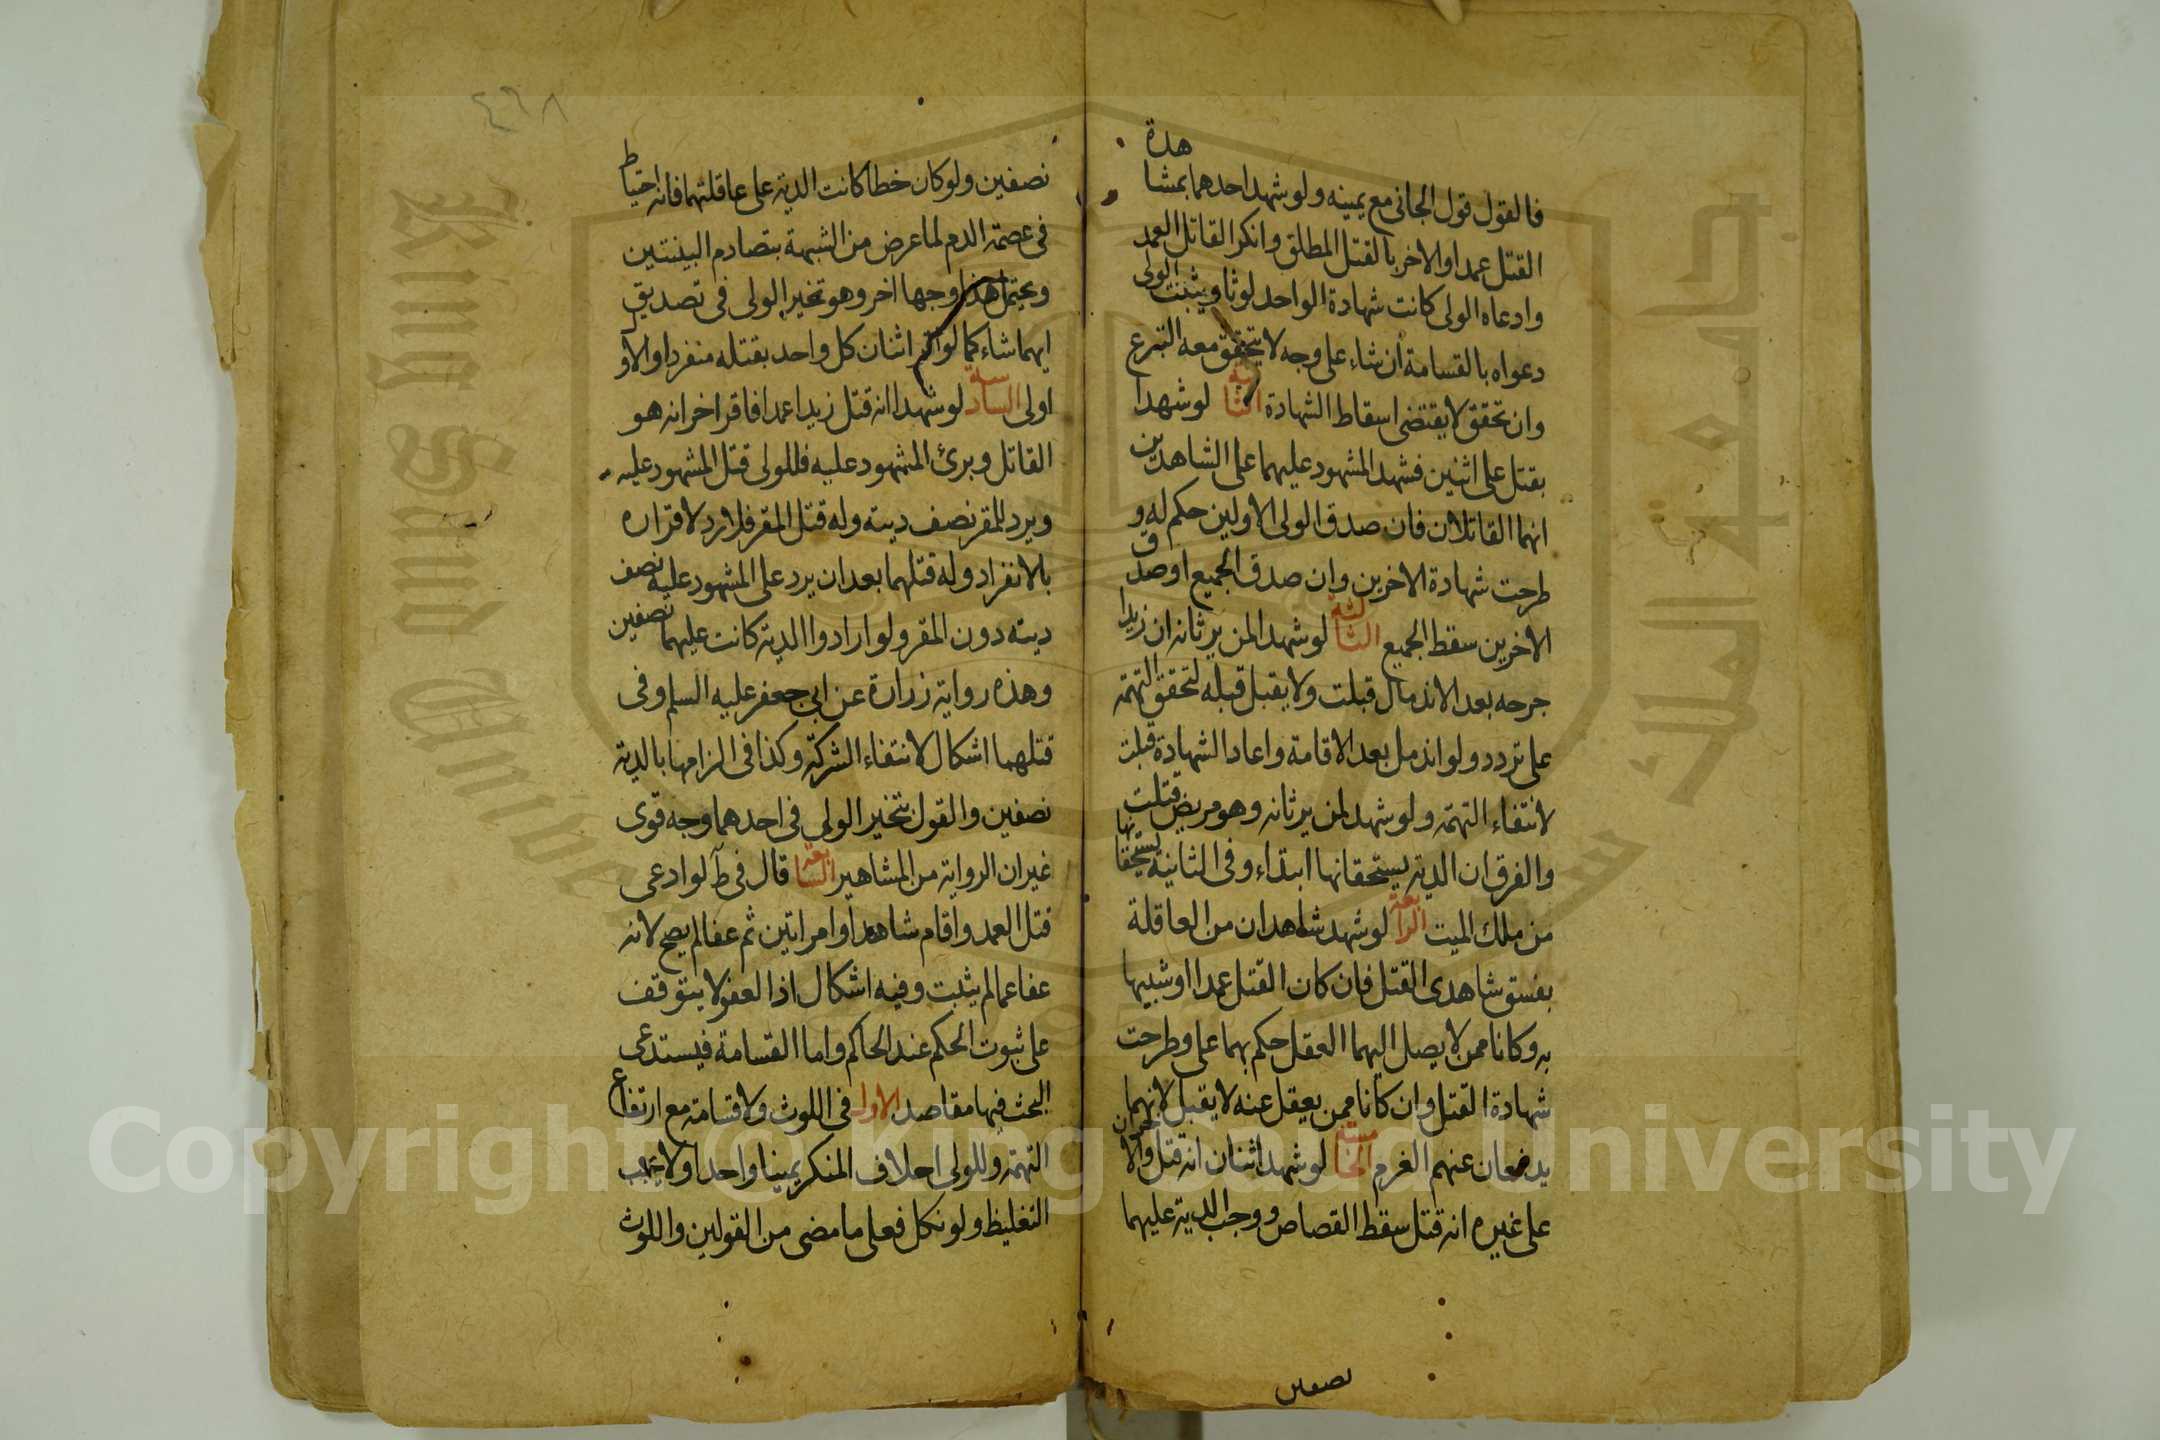 فالقول قول الجانى مع يمينه ولو شهد احدهما بمشاهدة
القتل عمدا والاخر بالقتل المطلق وانكر القاتل العمد
وادعاه الولى كانت شهادة الواحد لوثا ويثبت الولى
دعواه بالقسامة ان شاء على وجه لا يتحقق معه التبرع
وان تحقق لا يقتضى اسقاط الشهادة الثانية لو شهدا
بقتل على اثنين فشهد المشهود عليهما على الشاهدين
انهما القاتلان فان صدق الولى الاولين حكم له و
طرحت شهادة الاخرين وان صدق الجميع او صدق
الاخرين سقط الجميع الثالثة لو شهدا لمن يرثانه ان زيدا
جرحه بعد الاندمال قبلت ولا يقبل قبله لتحقق التهمة
على تردد ولو اندمل بعد الاقامة واعاد الشهادة قبلت
لانتفاء التهمة ولو شهد لمن يرثانه وهو مريض قبلت
والفرق ان الدية يستحقانها ابتداء وفى الثانية يستحقانها
من ملك الميت الرابعة لو شهد شاهدان من العاقلة
بفسق شاهدى القتل فان كان القتل عمدا او شبيها
به وكانا ممن لا يصل اليهما العقل حكم بهما على وطرحت
شهادة القتل وان كانا ممن يعقل عنه لا يقبل لانهما
يدفعان عنهم الغرم الخامسة لو شهد اثنان انه قتل والاخران
على غيره انه قتل سقط القصاص ووجب الدية عليهما
نصفين
٤٦٨
نصفين ولو كان خطا كانت الدية على عاقلتهما فانه احتياط
فى عصمة الدم لما عرض من الشبهة بتصادم البينتين
ويحتمل هذا وجها اخر وهو تخير الولى فى تصديق
ايهما شاء كما لو اقر اثنان كل واحد بقتله منفردا والاو
اولى السادسة لو شهدا انه قتل زيدا عمدا فاقر اخر انه هو
القاتل وبرئ المشهود عليه فللولى قتل المشهود عليه
ويرد للمقر نصف ديته وله قتل المقر فلا رد لاقراره
بالانفراد وله قتلهما بعد ان يرد على المشهود عليه نصف
ديته دون المقر ولو ارادوا الدية كانت عليهما نصفين
وهذه رواية زرارة عن ابى جعفر عليه السلم وفى
قتلهما اشكال لانتفاء الشركة وكذا فى الزامهما بالدية
نصفين والقول بتخير الولى فى احدهما وجه قوى
غير ان الرواية من المشاهير السابعة قال فى ط لو ادعى
قتل العمد واقام شاهدا وامراتين ثم عفا لم يصح لانه
عفا عما لم يثبت وفيه اشكال اذا العفو لا يتوقف
على ثبوت الحكم عند الحاكم واما القسامة فيستدعى
البحث فيها مقاصد الاول فى اللوث ولا قسامة مع ارتفاع
التهمة وللولى احلاف المنكر يمينا واحدا ولا يجب
التغليظ ولو نكل فعلى ما مضى من القولين واللوث
King Saud University
جامعة الملك سعود
Copyright © King Saud University